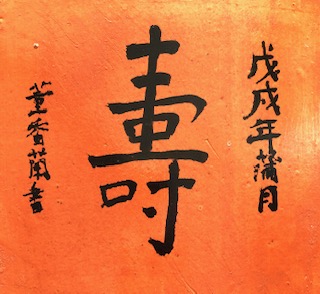 戊戌年蒲月
壽
董香蘭書